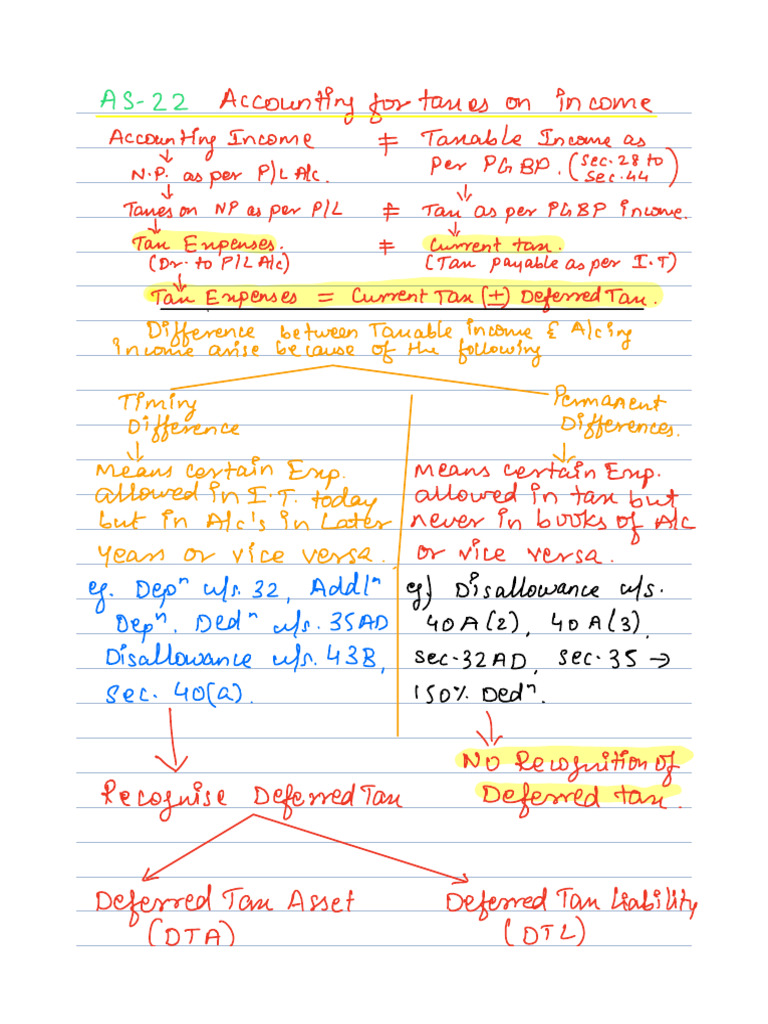 AS-22 Accounting for taxes on income
Accounting Income ≠ Taxable Income as
N.P. as per P/L A/c. per PGBP. (Sec. 28 to Sec. 44)
Taxes on NP as per P/L ≠ Tax as per PGBP income.
Tax Expenses. ≠ Current tax.
(Dr. to P/L A/c) (Tax payable as per I.T)
Tax Expenses = Current Tax (±) Deferred Tax.
Difference between Taxable income & A/cing
income arise because of the following
Timing
Difference
Means certain Exp.
allowed in I.T. today
but in A/c's in Later
years or vice versa.
eg. Depⁿ u/s. 32, Addlⁿ
Depⁿ. Dedⁿ u/s. 35AD
Disallowance u/s. 43B,
Sec. 40(a).
Permanent
Differences.
Means certain Exp.
allowed in tax but
never in books of A/c
or vice versa.
eg) Disallowance u/s.
40A(2), 40A(3).
Sec. 32AD, Sec. 35 →
150% Dedⁿ.
No Recognition of
Deferred tax.
Recognise Deferred Tax
Deferred Tax Asset
(DTA)
Deferred Tax Liability
(DTL)